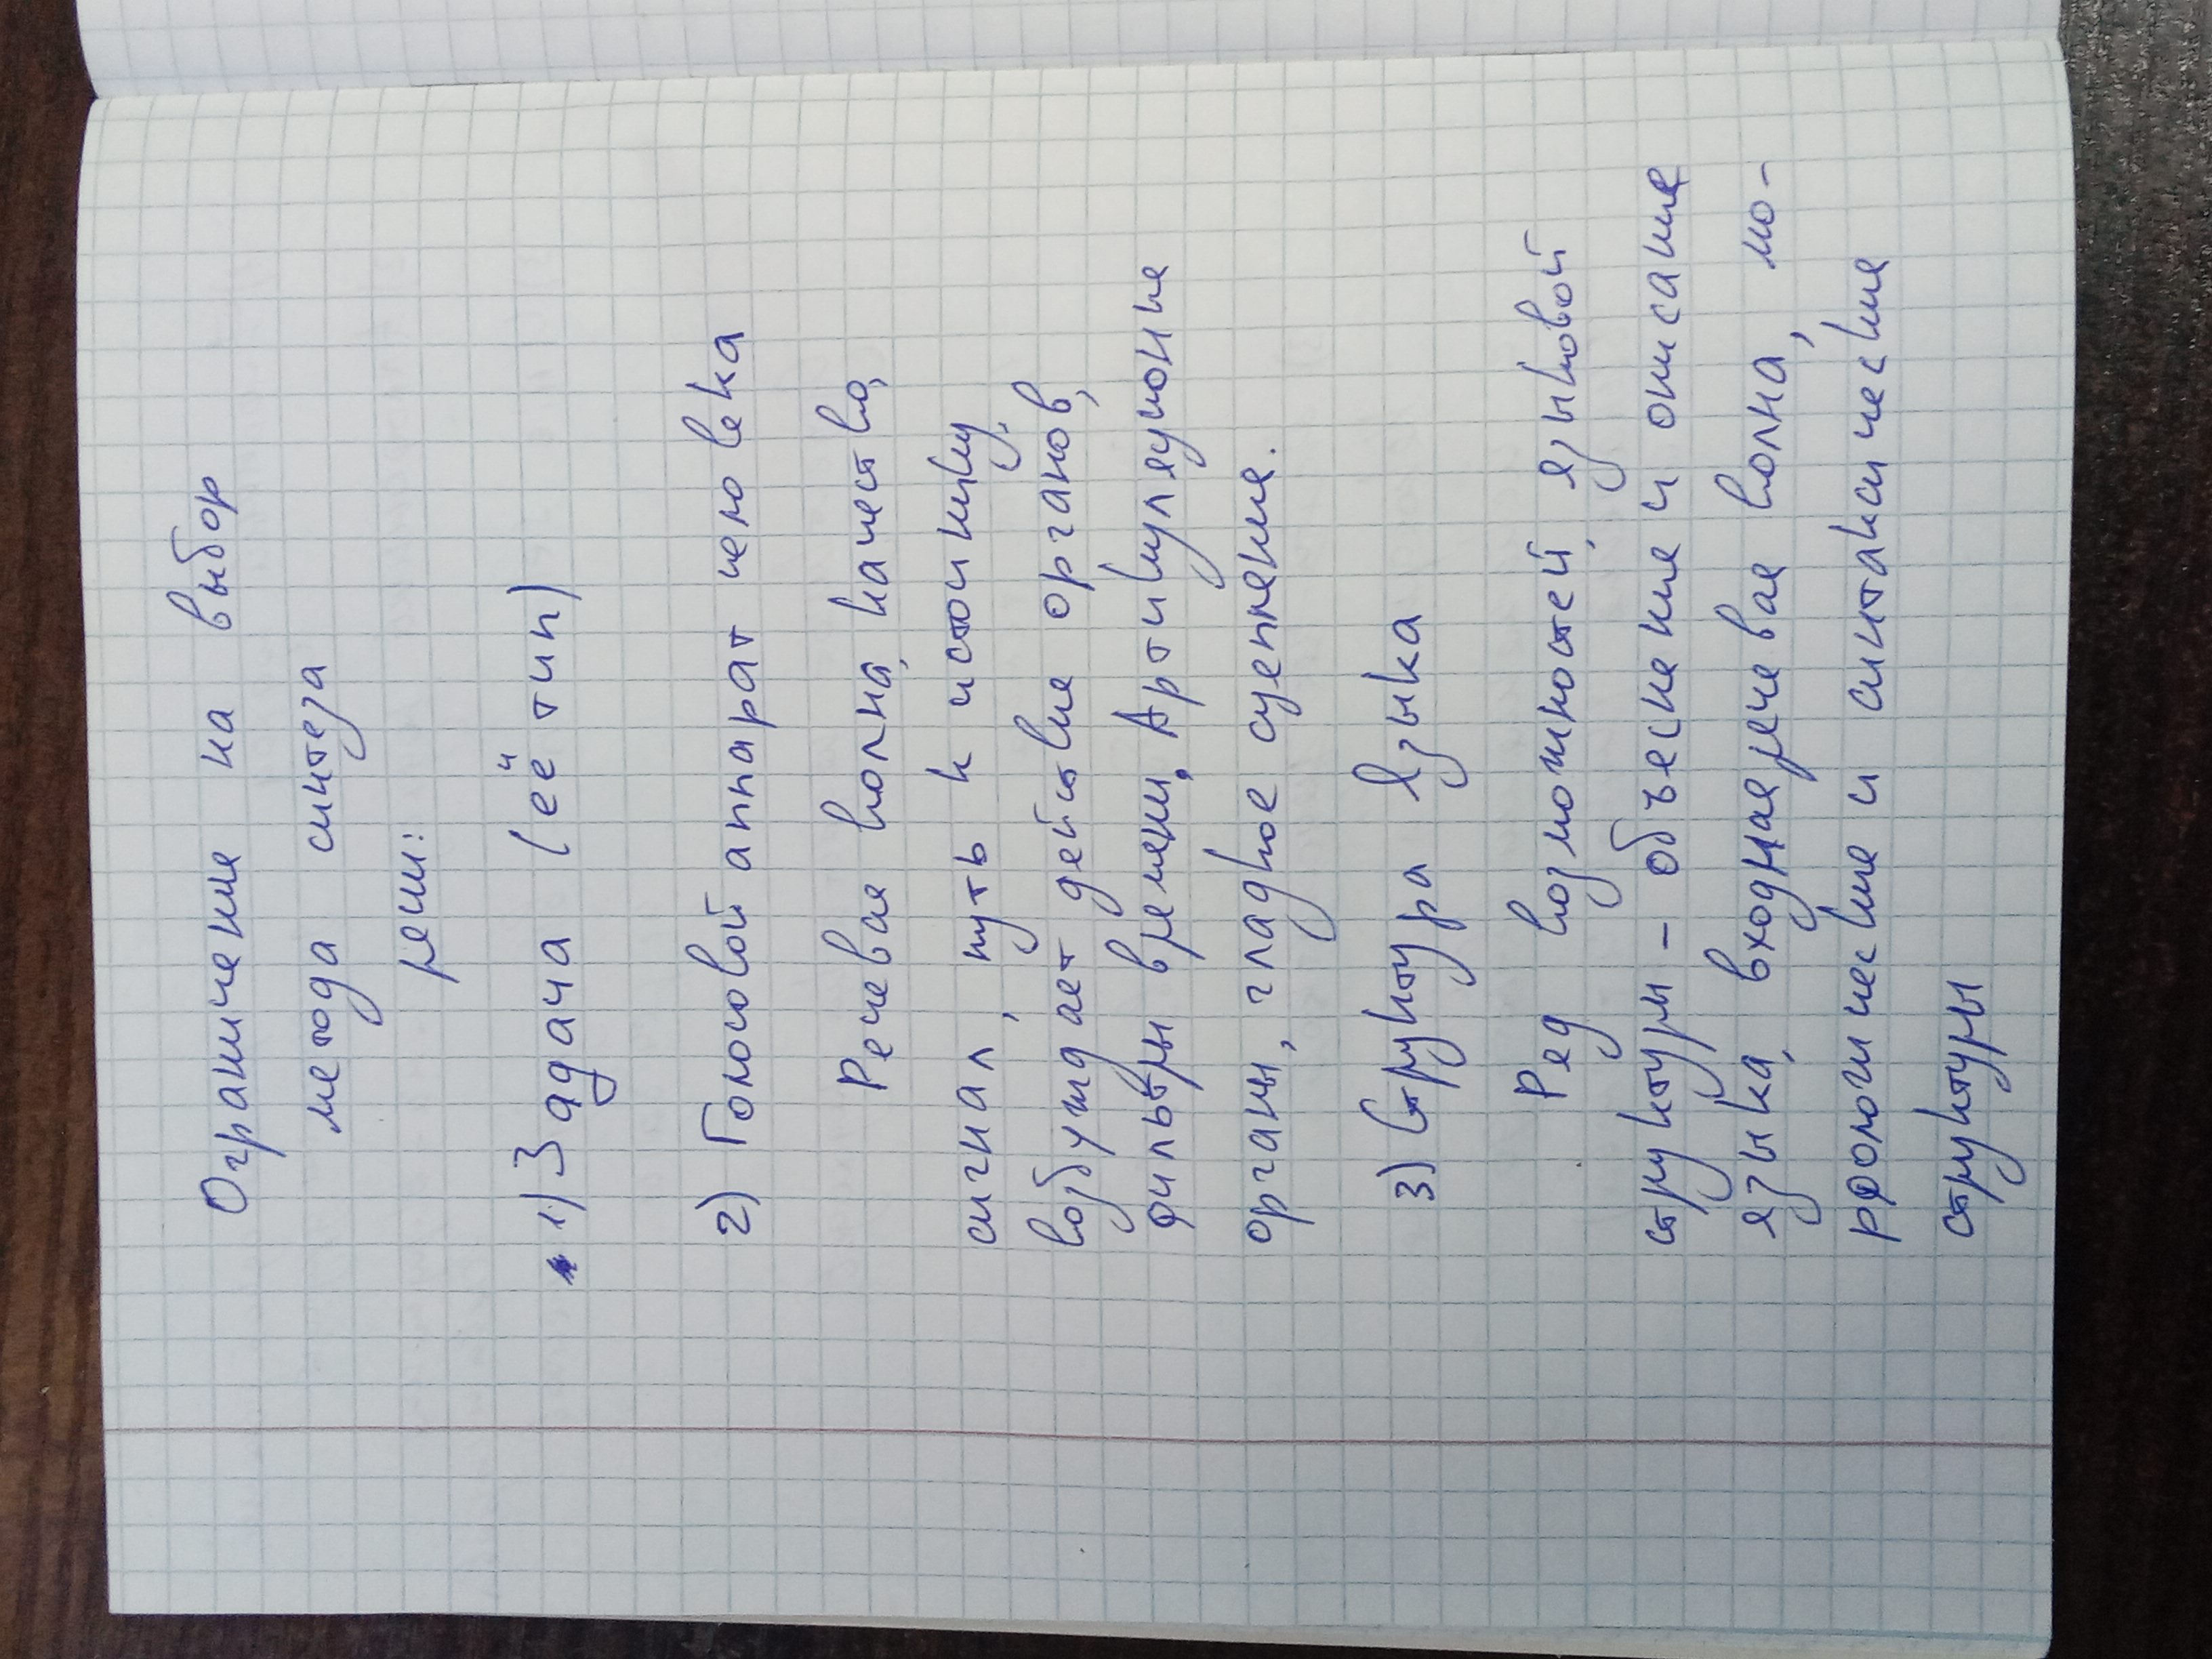 Ограничение на выбор
метода синтеза
речи:
1) Задача (её тип)
2) Голосовой аппарат человека
Речевая волна, качество,
сигнал, путь к источнику,
возбуждает действие органов,
фильтры времени, Артикуляционные
органы, гладкое сцепление.
3) Структура языка
Ряд возможностей, языковой
структуры - объяснение и описание
языка, входная речевая волна, мо-
рфологические и синтаксические
структуры